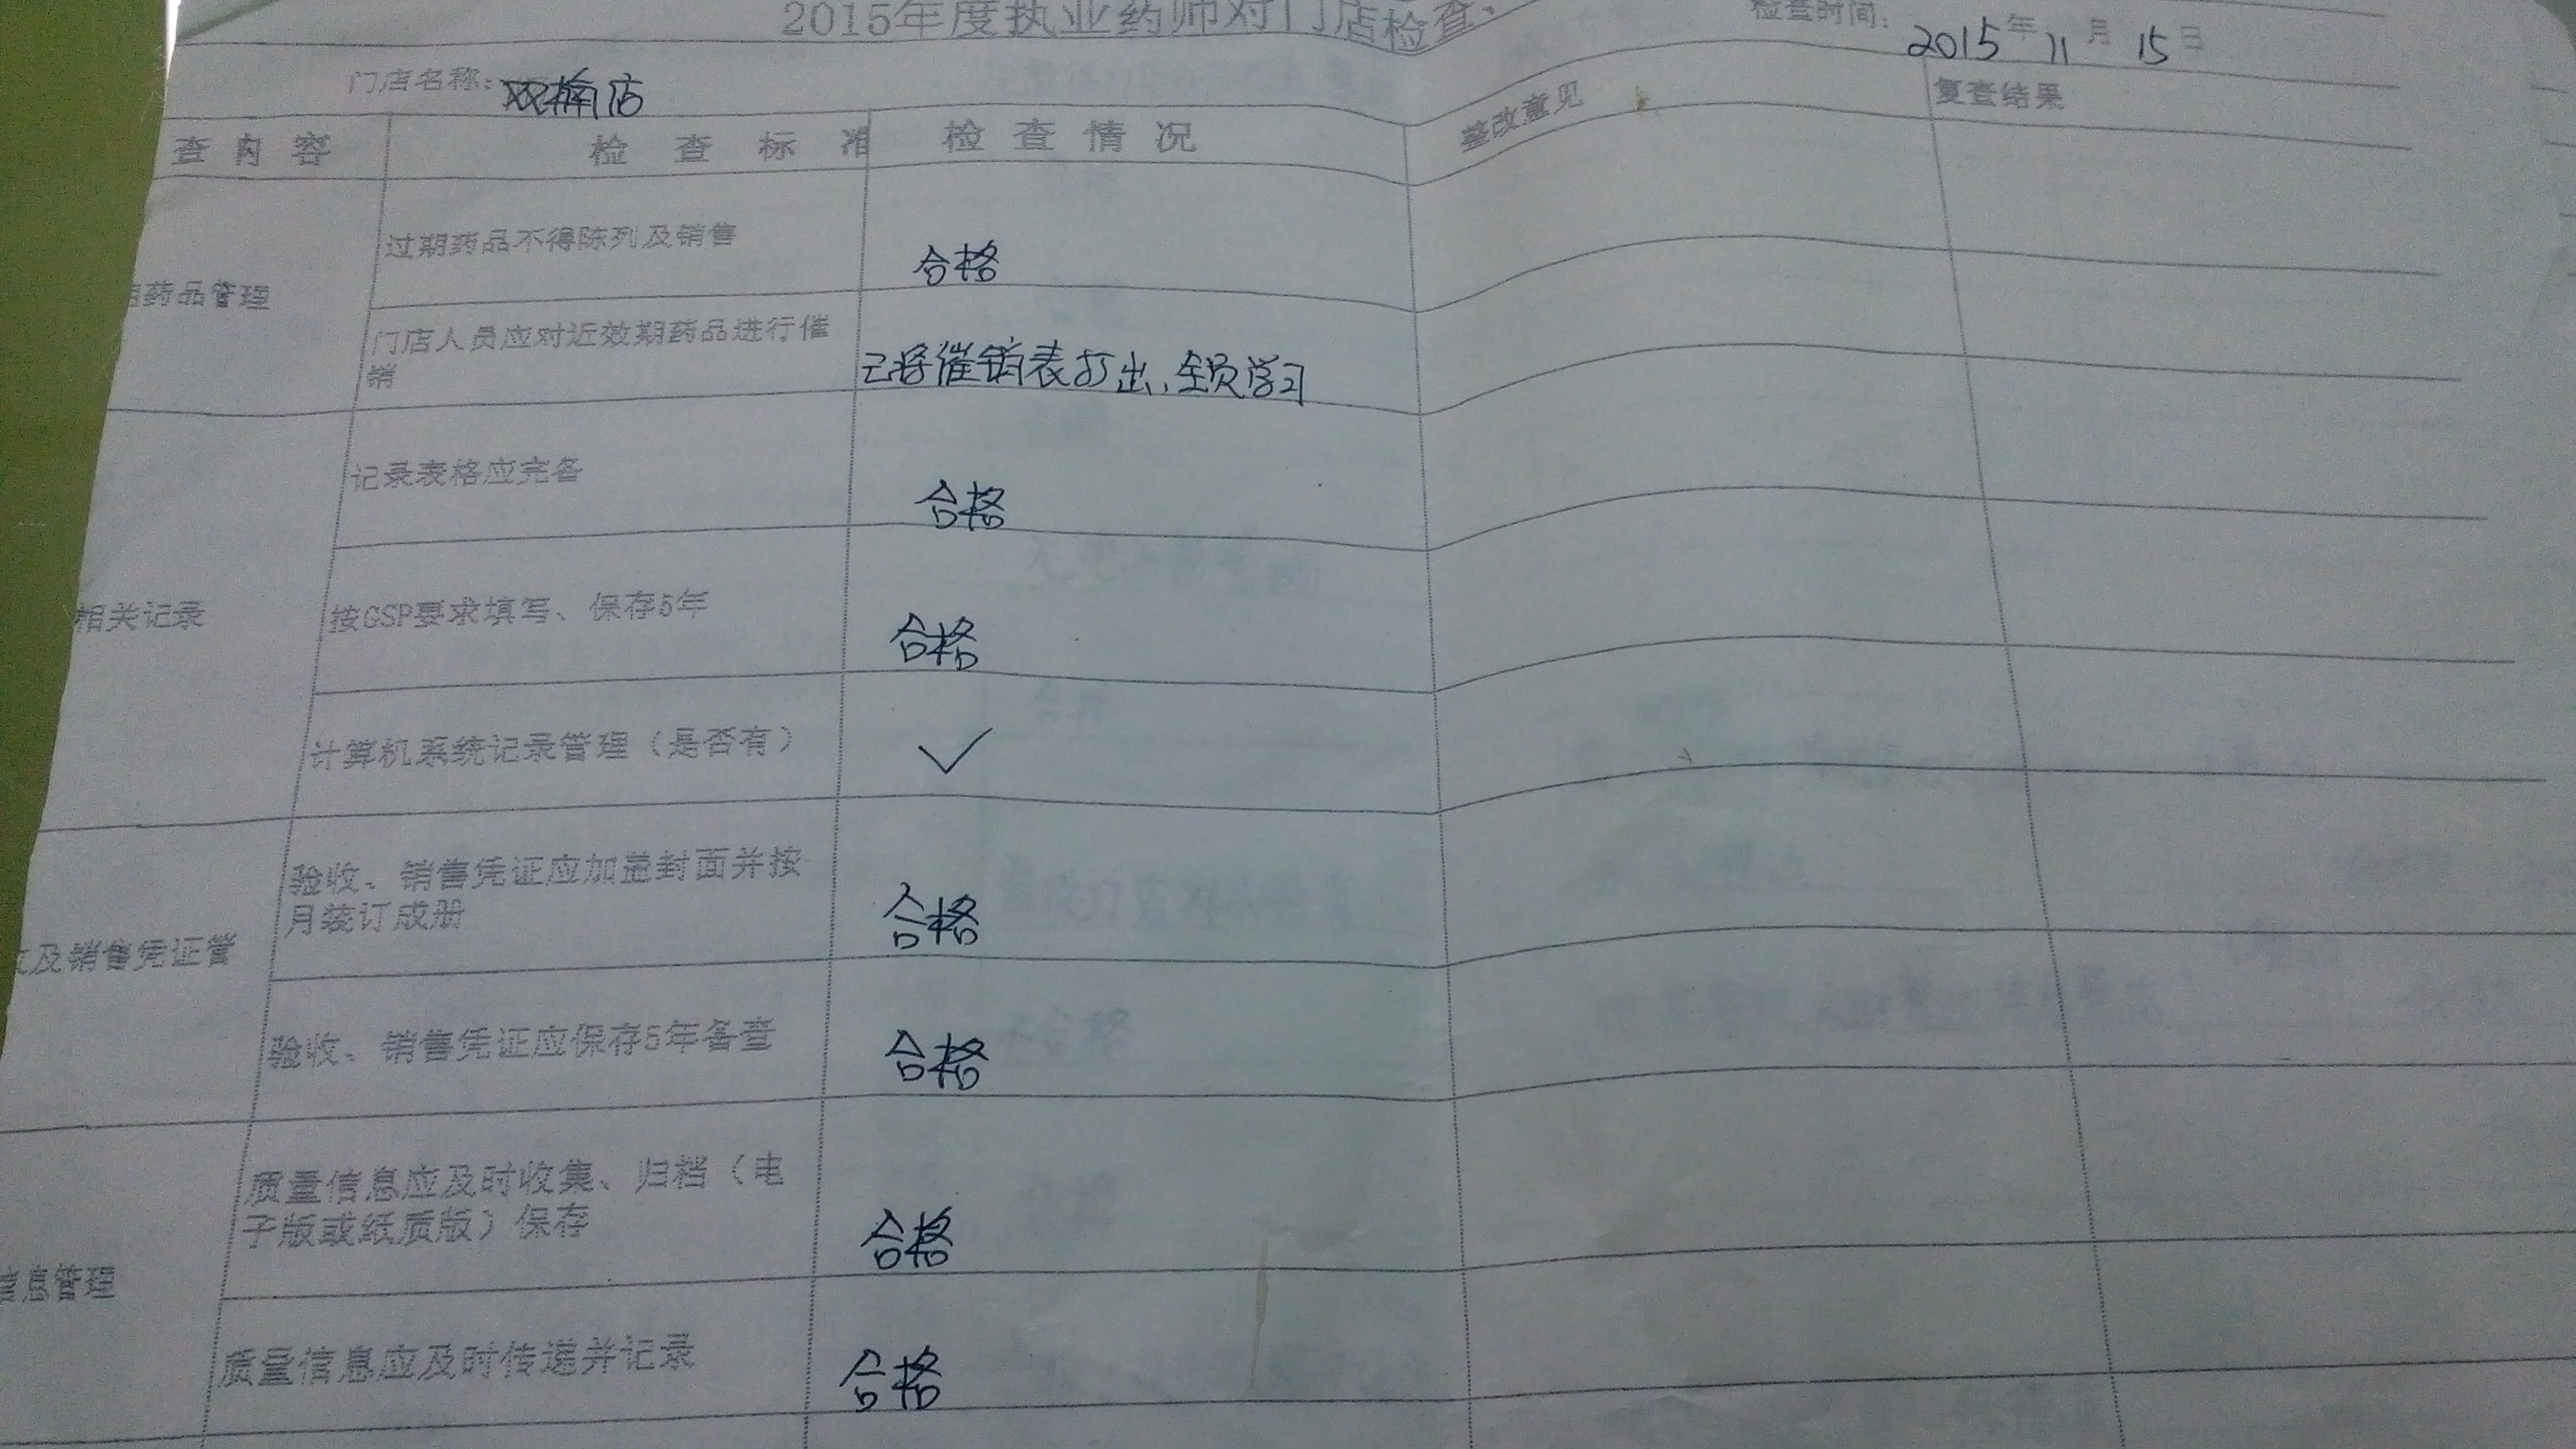 2015年度执业药师对门店检查
检查时间：2015年11月15日
门店名称：双楠店
查内容 检查标准 检查情况 整改意见 复查结果
药品管理
过期药品不得陈列及销售 合格
门店人员应对近效期药品进行催
销
已将催销表打出，全员学习
相关记录
记录表格应完备 合格
按GSP要求填写、保存5年 合格
计算机系统记录管理（是否有） ✓
及销售凭证管
验收、销售凭证应加盖封面并按
月装订成册
合格
验收、销售凭证应保存5年备查 合格
信息管理
质量信息应及时收集、归档（电
子版或纸质版）保存
合格
质量信息应及时传递并记录 合格